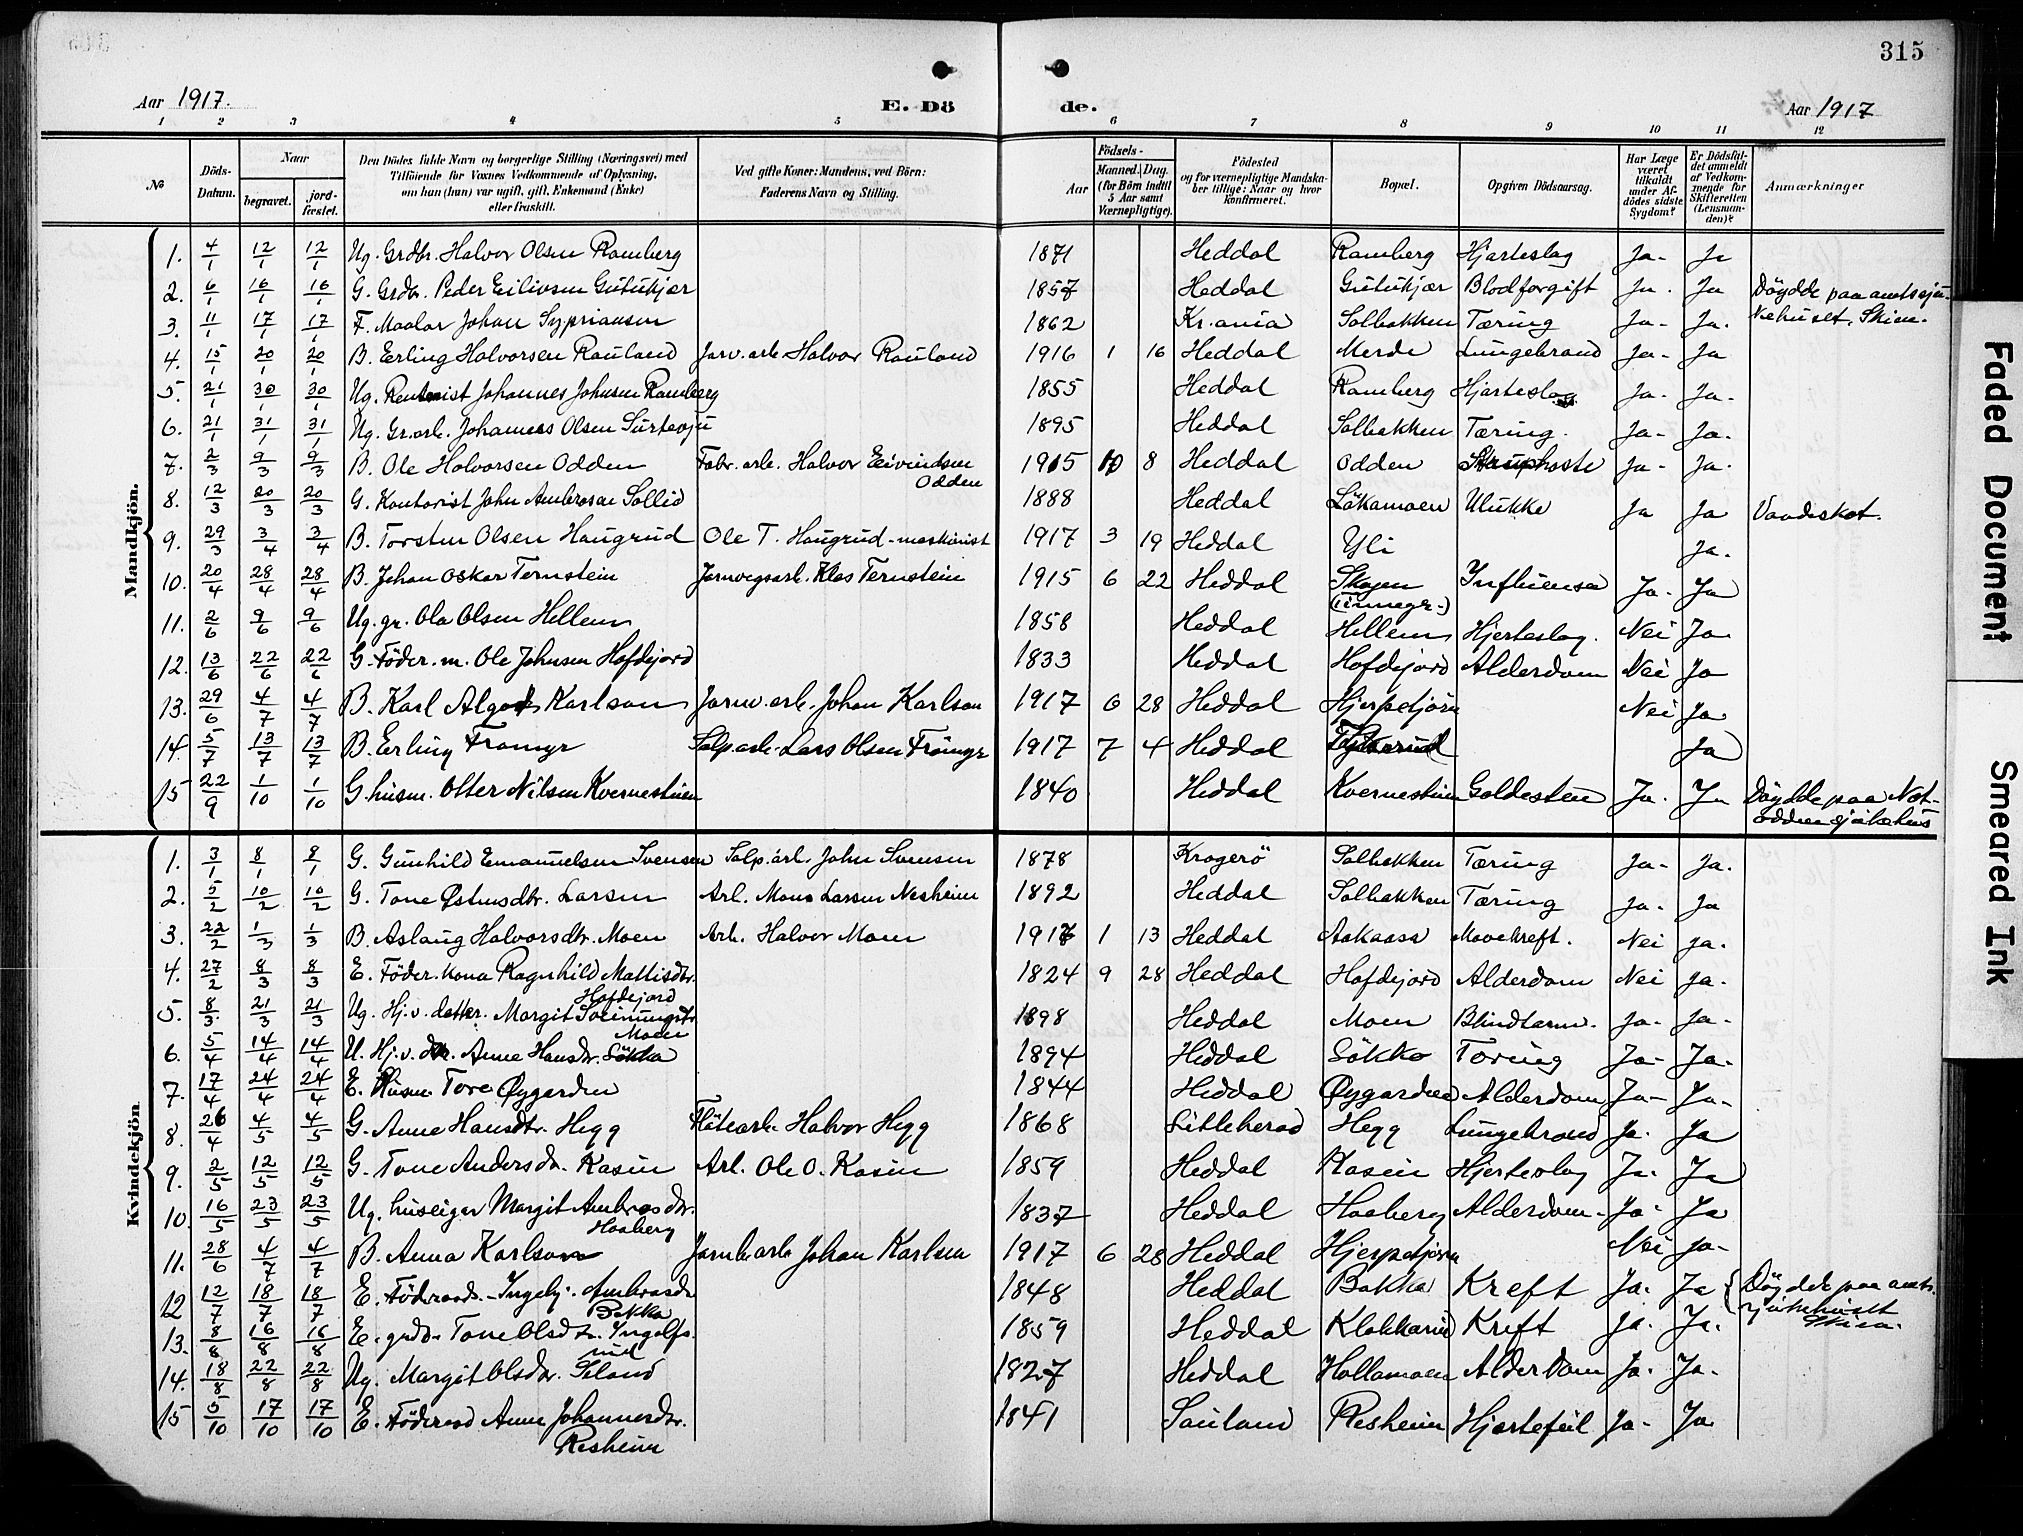 315
Aar 1917.
E. Dö
de.
Aar 1917
1 2 3 4 5 6 7 8 9 10 11 12
№
Döds-Datum.
Naar
begravet.
jord-fæstet.
Den Dödes fulde Navn og borgerlige Stilling (Næringsvei) med Tilföiende for Voxnes Vedkommende af Oplysning, om han (hun) var ugift, gift, Enkemand (Enke) eller fraskilt.
Ved gifte Koner: Mandens, ved Börn: Faderens Navn og Stilling.
Aar
Födsels-
Maaned. Dag.
(for Börn indtil 5 Aar samt Værnepligtige).
Födested og for værnepligtige Mandska-ber tillige: Naar og hvor konfirmeret.
Bopæl.
Opgiven Dödsaarsag.
Har Læge været tilkaldt under Af-dödes sidste Sygdom?
Er Dödsfal-det anmeldt af Vedkom-mende for Skifteretten (Lensman-den)?
Anmærkninger
Mandkjön.
1. 4/1 12/1 12/1 Ug. Grdbr. Halvor Olsen Ramberg 1871 Heddal Ramberg Hjarteslag Ja- Ja
2. 6/1 16/1 16/1 G. Grdbr. Peder Eilivsen Gutukjær 1857 Heddal Gutukjær Blodforgift Ja. Ja Döydde paa amtssju-
3. 11/1 17/1 17/1 F. Maalar Johan Sypriansen 1862 Kr.ania Solbakken Tæring Ja- Ja. kehuset, Skien.
4. 15/1 20/1 20/1 B. Erling Halvorsen Rauland Jarv. arb. Halvor Rauland 1916 1 16 Heddal Merde Lungebrand Ja- Ja
5. 21/1 30/1 30/1 Ug. Rentenist Johannes Johnsen Ramberg 1855 Heddal Ramberg Hjarteslag Ja- Ja-
6. 21/1 31/1 31/1 Ug. Gr.arb. Johannes Olsen Surtevju 1895 Heddal Solbakken Tæring. Ja- Ja.
7. 2/3 9/3 9/3 B. Ole Halvorsen Odden Fabr. arb. Halvor Eivindsen Odden 1915 10 8 Heddal Odden Struphoste Ja- Ja.
8. 12/3 20/3 20/3 G. Kontorist John Ambrosen Sollid 1888 Heddal Lökamoen Ulukke Ja Ja Vaadeskot.
9. 29/3 3/4 3/4 B. Torsten Olsen Haugrud Ole T. Haugrud-maskinist 1917 3 19 Heddal Yli Ja.
10. 20/4 28/4 28/4 B. Johan Oskar Ternstein Jarnvegsarb. Klas Ternstein 1915 6 22 Heddal Skogen (Tinnegr.) Influensa Ja- Ja
11. 2/6 9/6 9/6 Ug. gr. Ola Olsen Hellem 1858 Heddal Hellem Hjerteslag. Nei Ja
12. 13/6 22/6 22/6 G. Föder. m. Ole Johnsen Hofdejord 1833 Heddal Hofdejord Alderdom Nei Ja
13. 29/6 4/7 4/7 B. Karl Algot Karlson Jarnv. arb. Johan Karlson 1917 6 28 Heddal Hjerpetjörn Nei Ja
14. 5/7 13/7 13/7 B. Erling Framyr Salp.arb. Lars Olsen Framyr 1917 7 4 Heddal Ja
15 22/9 1/10 1/10 G. husm. Otter Nilsen Kvernestuen 1840 Heddal Kvernestuen Galdesten Ja. Ja Döydde paa Not-odden sjukehus
Kvindekjön
1. 3/1 8/1 8/1 G. Gunhild Emanuelsen Svensen Salp. arb. John Svensen 1878 Kragerö Solbakken Tæring Ja- Ja.
2. 5/2 10/2 10/2 G. Tone Østensdtr. Larsen Arb. Mons Larsen Nesheim 1892 Heddal Solbakken Tæring Ja- Ja
3. 22/2 1/3 1/3 B. Aslaug Halvorsdtr. Moen Arb. Halvor Moen 1917 1 13 Heddal Aakaass Mavekreft. Nei Ja.
4. 27/2 8/3 8/3 E. Föder. kona Ragnhild Mattisdtr. Hofdejord 1824 9 28 Heddal Hofdejord Alderdom Nei Ja.
5. 8/3 21/3 21/3 Ug. Hj. v. datter. Margit Sveinungsdtr. Moen 1898 Heddal Moen Blindtarm. Ja- Ja-
6. 5/4 14/4 14/4 U. Hj. v. dtr. Anne Hansdtr. Lökka 1894 Heddal Lökka Tæring Ja- Ja.
7. 17/4 24/4 24/4 E. Husm. Tore Øygarden 1844 Heddal Øygarden Alderdom Ja- Ja-
8. 26/4 4/5 4/5 G. Anne Hansdtr. Hegg Flötearb. Halvor Hegg 1868 Litleherad Hegg Lungebrand Ja. Ja
9. 2/5 12/5 12/5 G. Tone Andersdr. Kasin Arb. Ole O. Kasin 1859 Heddal Kasin Hjerteslag Ja. Ja
10. 16/5 23/5 23/5 Ug. huseigar Margit Ambrosdtr. Haaberg 1837 Heddal Haaberg Alderdom- Ja- Ja
11. 28/6 4/7 4/7 B. Anna Karlson Jarnb. arb Johan Karlson 1917 6 28 Heddal Hjerpetjörn Nei Ja-
12 12/7 18/7 18/7 E. Föderaads.- Ingebj. Ambrosdr Bakka 1848 Heddal Bakka Kreft Ja. Ja Döydde paa amts.
13. 8/8 16/8 16/8 E. grdbr. Tone Olsdtr. Ingolfsrud 1859 Heddal Klokkarud Kreft Ja. Ja. sjukehuset Skien.
14. 18/8 22/8 22/8 Ug. Margit Olsdr. Seland 1827 Heddal Hollamoen Alderdom Ja. Ja.
15 5/10 17/10 17/10 E. Föderaad Anne Johannesdtr. Resheim 1841 Sauland Resheim Hjartefeil Ja- Ja.
Faded Document
Smeared Ink